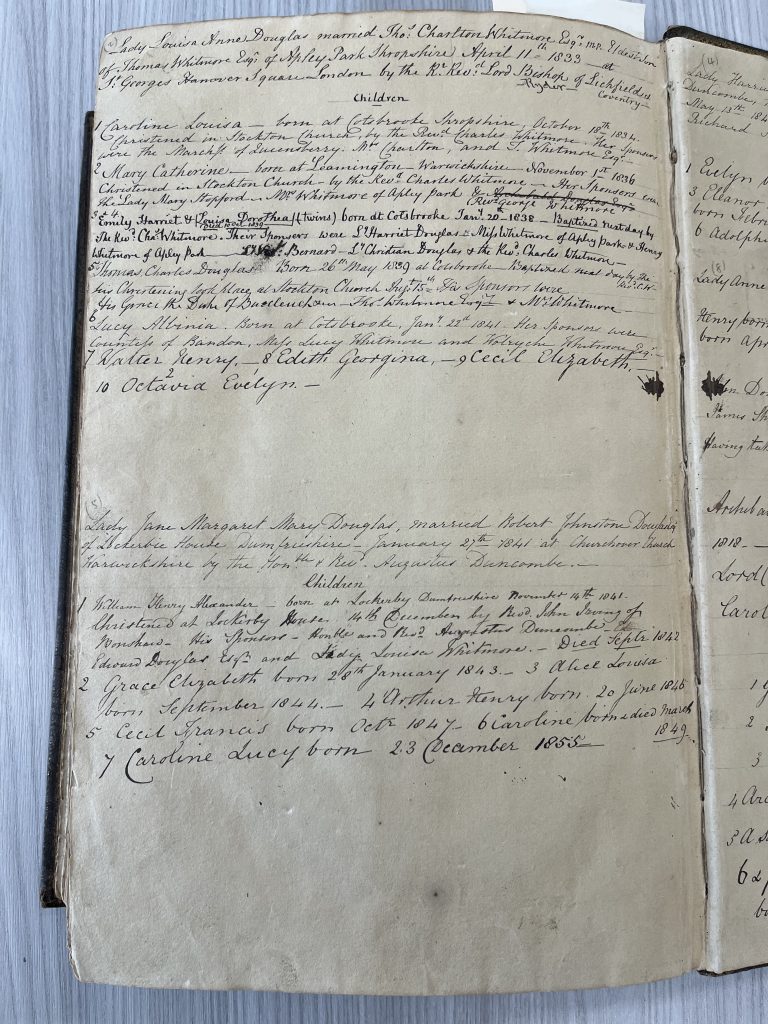 Lady Louisa Anne Douglas married Thos. Charlton Whitmore Esqr. M.P. Eldest Son
of Thomas Whitmore Esqr. of Apley Park Shropshire April 11th 1833 — at
St. Georges Hanover Square London by the Rt. Revd. Lord Bishop of Lichfield &
Coventry —
Ryder —
Children
1 Caroline Louisa — born at Cotsbrooke Shropshire, October 18th 1834.
Christened in Stockton Church, by the Revd. Charles Whitmore. Her Sponsors
were the Marchss of Queensberry. Mrs Charlton, and T. Whitmore Esqr. —
2 Mary Catherine — born at Leamington — Warwickshire — November 1st 1836
Christened in Stockton Church — by the Revd. Charles Whitmore — Her Sponsors were
the Lady Mary Hopford — Mrs Whitmore of Apley Park &
Revd. George Whitmore
3 & 4
Emily Harriet & Louisa Dorothea (twins) born at Cotsbrooke Jany. 20th 1838 — Baptized next day by
the Revd. Chas. Whitmore. Their Sponsers were Ly Harriet Douglas = Miss Whitmore of Apley Park & Henry
Whitmore of Apley Park — Bernard — Ly Christian Douglas & the Revd. Charles Whitmore —
5 Thomas Charles Douglas Born 26th May 1839 at Cotsbrooke — Baptized next day by the
Revd. C.W.
his Christening took place at Stockton Church Augt. 15th = His Sponsors were
His Grace the Duke of Buccleuch — Thos. Whitmore Esqr. & Mrs. Whitmore —
6
Lucy Albinia. Born at Cotsbrooke, Jany. 22d 1841. Her Sponsors were
Countess of Bandon, Miss Lucy Whitmore and Wolryche Whitmore Esqr. —
7 Walter Henry. — 8 Edith Georgina, — 9 Cecil Elizabeth, —
10 Octavia Evelyn. —
Lady Jane Margaret Mary Douglas, married Robert Johnstone Douglas
of Lockerbie House Dumfriesshire — January 27th 1841 at Churchover Church
Warwickshire by the Honble & Revd. Augustus Duncombe. —
Children
1 William Henry Alexander — born at Lockerby Dumfriesshire November 14th 1841.
Christened at Lockerby House. 14th December by Revd. John Irving of
— His Sponsors — Honble and Revd. Augustus Duncombe
Edward Douglas Esqr. and Lady Louisa Whitmore. — Died Septr. 1842
2 Grace Elizabeth born 28th January 1843. — 3 Alice Louisa
born September 1844. — 4 Arthur Henry born 20 June 1846
5 Cecil Francis born Octr 1847 — 6 Caroline born & died March
1849
7 Caroline Lucy born 23 December 1855
Lady Harri
Duncombe,
May 13th 184
Richard
1 Evelyn b
3 Eleanor
born Febr
6 Adolph
(8)
Lady Anne
Henry born
born Apr
James Sh
Having tak
Archiba
1818 —
Lord (
Carol
1
2
3
4 Ar
5 A
6 &
bo